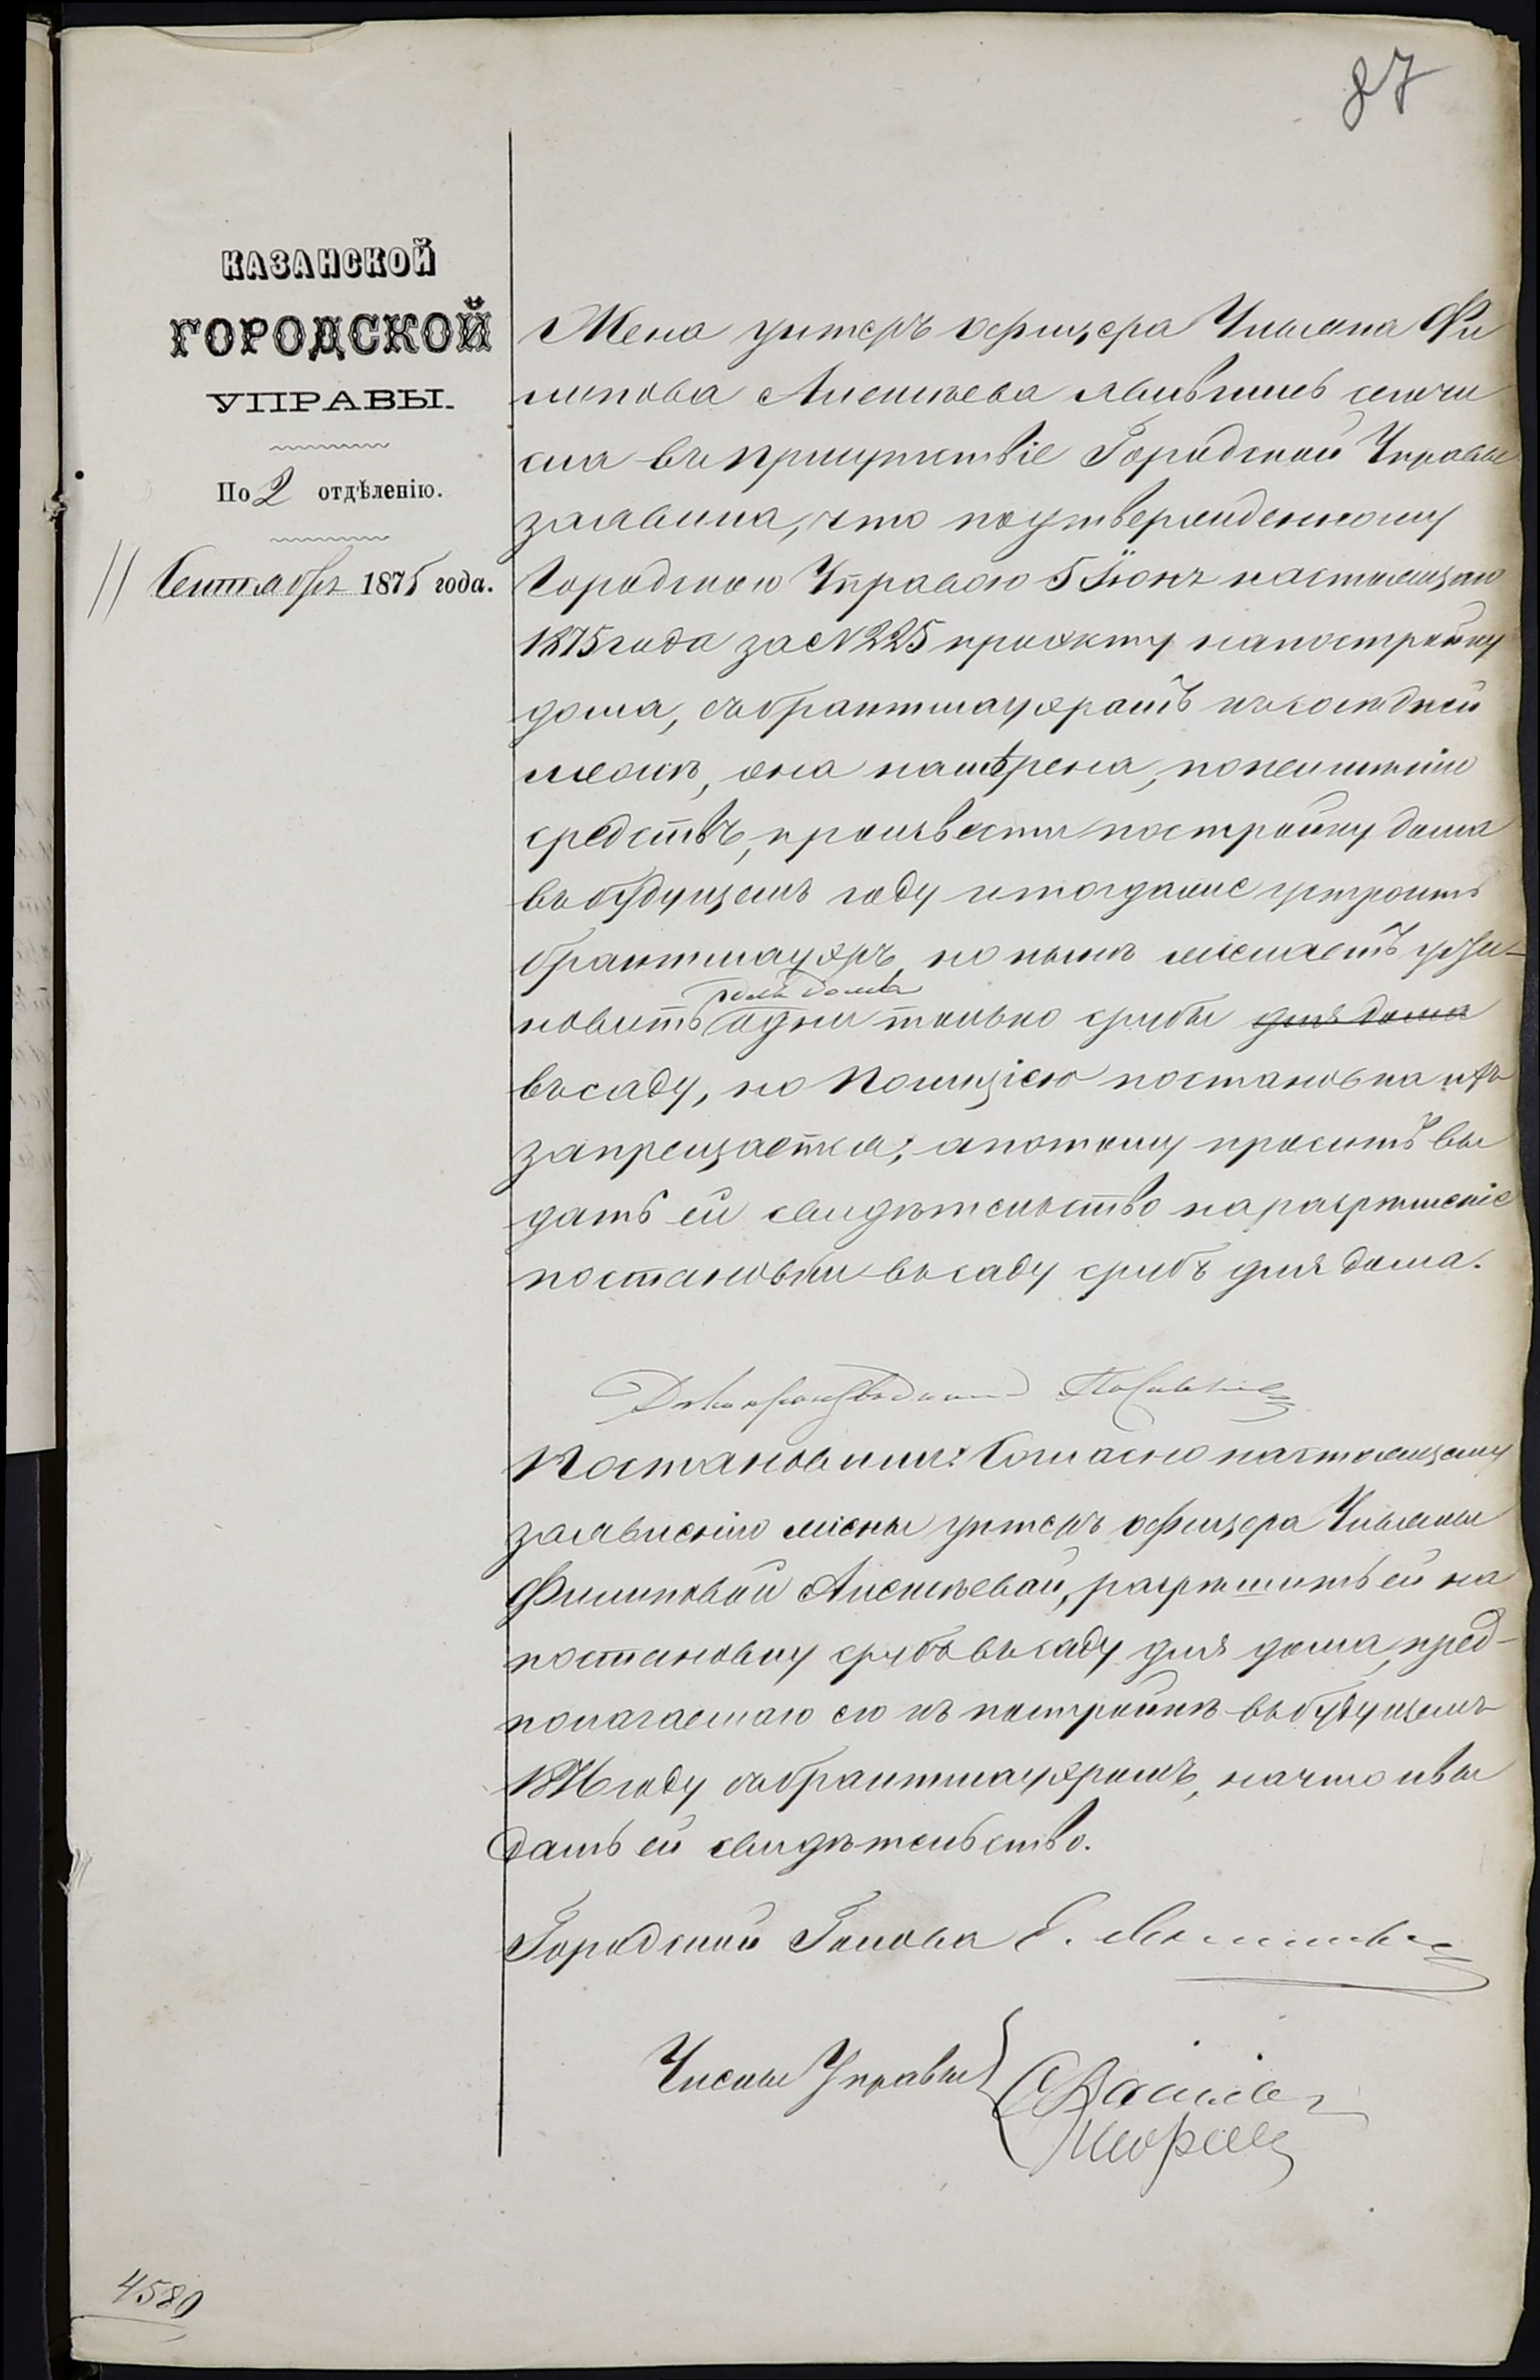 87
КАЗАНСКОЙ
ГОРОДСКОЙ
УПРАВЫ.
По 2 отдѣленію.
11 Сентября 1875 года.
Жена унтеръ офицера Ульяна Фи
липова Алексѣева явившись сего чи
сла въ присутствіе Городской Управы
заявила, что по утвержденному
Городскою Управою 5 Іюня настоящаго
1875 года за № 225 проэкту на постройку
дома, съ брантмауэромъ къ сосѣдней
межѣ, она намѣрена, по неимѣнію
средствъ, произвести постройку дома
въ будущемъ году и тогда же устроить
брантмауэръ, но нынѣ желаетъ уста-
для дома
новить одни только срубы для дома
въ саду, но Полиціею постановка ихъ
запрещается; а потому проситъ вы
дать ей свидѣтельство на разрѣшеніе
постановки въ саду срубъ для дома.
Постановили: Согласно настоящему
заявленію жены унтеръ офицера Ульяны
Филиповой Алексѣевой, разрѣшить ей на
постановку срубъ въ саду для дома, пред-
полагаемаго ею къ постройкѣ въ будущемъ
1876 году съ брантмауэромъ, на что и вы
дать ей свидѣтельство.
Городской Голова
Члены Управы
4580